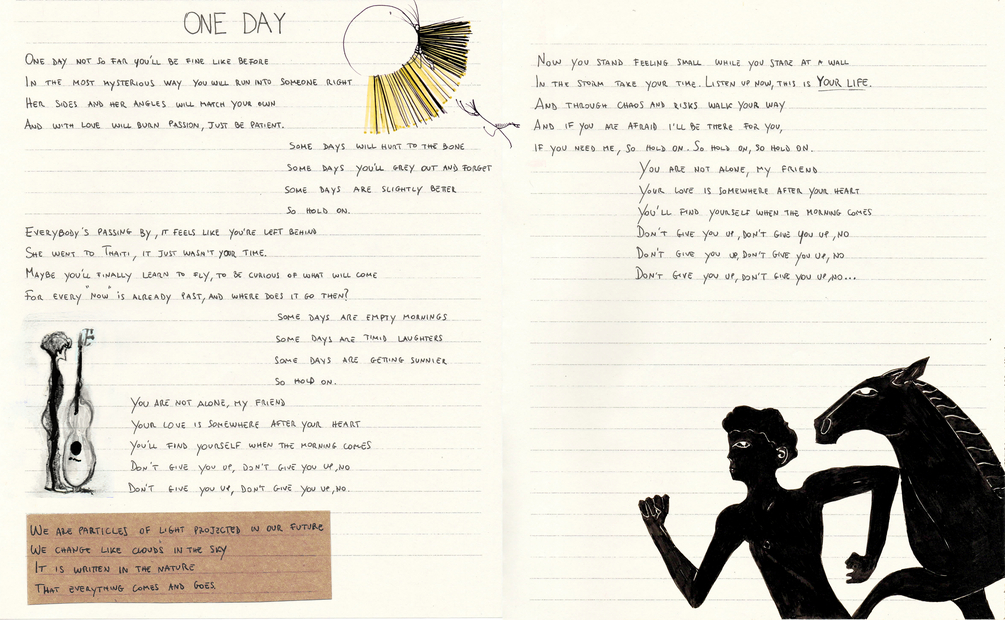 ONE DAY
ONE DAY NOT SO FAR YOU'LL BE FINE LIKE BEFORE
IN THE MOST MYSTERIOUS WAY YOU WILL RUN INTO SOMEONE RIGHT
HER SIDES AND HER ANGLES WILL MATCH YOUR OWN
AND WITH LOVE WILL BURN PASSION, JUST BE PATIENT.
SOME DAYS WILL HURT TO THE BONE
SOME DAYS YOU'LL GREY OUT AND FORGET
SOME DAYS ARE SLIGHTLY BETTER
SO HOLD ON.
EVERYBODY'S PASSING BY, IT FEELS LIKE YOU'RE LEFT BEHIND
SHE WENT TO THAITI, IT JUST WASN'T YOUR TIME.
MAYBE YOU'LL FINALLY LEARN TO FLY, TO BE CURIOUS OF WHAT WILL COME
FOR EVERY "NOW" IS ALREADY PAST, AND WHERE DOES IT GO THEN?
SOME DAYS ARE EMPTY MORNINGS
SOME DAYS ARE TIMID LAUGHTERS
SOME DAYS ARE GETTING SUNNIER
SO HOLD ON.
YOU ARE NOT ALONE, MY FRIEND
YOUR LOVE IS SOMEWHERE AFTER YOUR HEART
YOU'LL FIND YOURSELF WHEN THE MORNING COMES
DON'T GIVE YOU UP, DON'T GIVE YOU UP, NO
DON'T GIVE YOU UP, DON'T GIVE YOU UP, NO.
WE ARE PARTICLES OF LIGHT PROJECTED IN OUR FUTURE
WE CHANGE LIKE CLOUDS IN THE SKY
IT IS WRITTEN IN THE NATURE
THAT EVERYTHING COMES AND GOES.
NOW YOU STAND FEELING SMALL WHILE YOU STARE AT A WALL
IN THE STORM TAKE YOUR TIME. LISTEN UP NOW, THIS IS YOUR LIFE.
AND THROUGH CHAOS AND RISKS WALK YOUR WAY
AND IF YOU ARE AFRAID I'LL BE THERE FOR YOU,
IF YOU NEED ME, SO HOLD ON. SO HOLD ON, SO HOLD ON.
YOU ARE NOT ALONE, MY FRIEND
YOUR LOVE IS SOMEWHERE AFTER YOUR HEART
YOU'LL FIND YOURSELF WHEN THE MORNING COMES
DON'T GIVE YOU UP, DON'T GIVE YOU UP, NO
DON'T GIVE YOU UP, DON'T GIVE YOU UP, NO
DON'T GIVE YOU UP, DON'T GIVE YOU UP, NO...